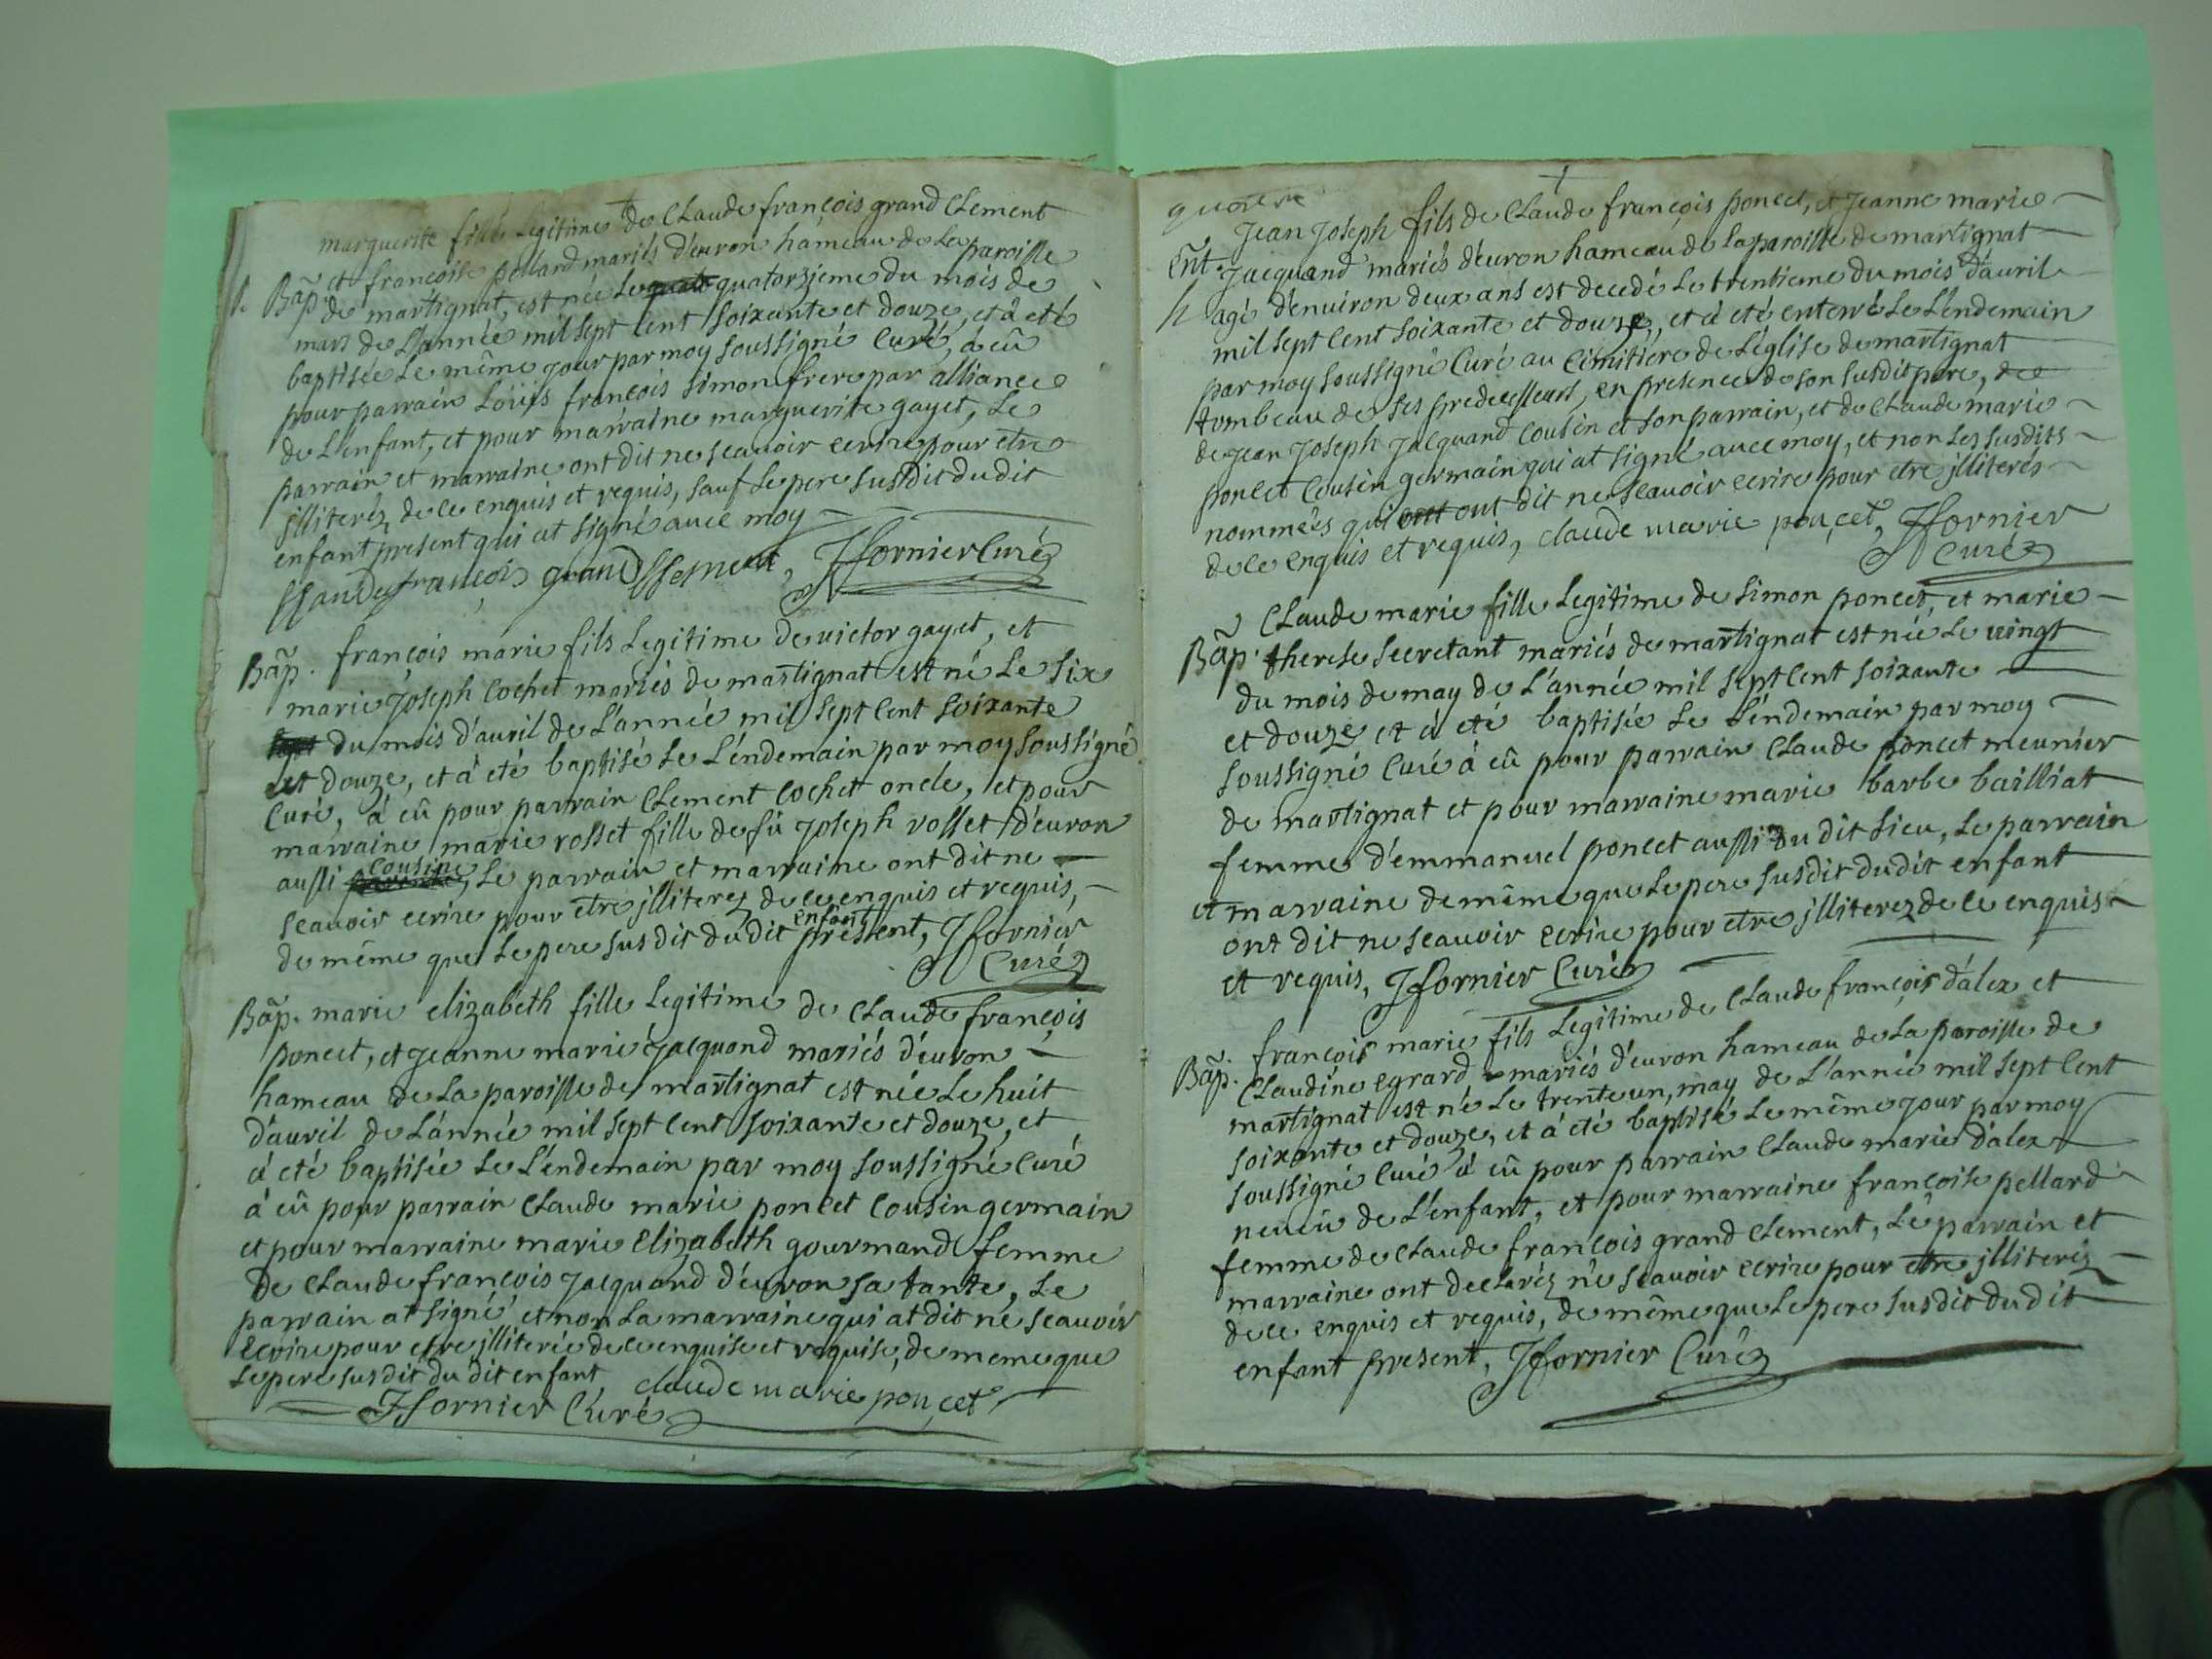 marguerite fille Legitime de Claude françois grand Clement
Bap̃ et françoise pellard mariés d'euron hameau de La paroisse
de martignat, est née Le quatorzieme du mois de
mars de L'année mil sept cent soixante et douze, et à eté
baptisée Le même jour par moy soussigné Curé, à eû
pour parrain Loüis françois Simon frere par alliance
de L'enfant, et pour marraine marguerite gayet, Le
parrain et marraine ont dit ne scauoir ecrire pour etre
jlliterez de ce enquis et requis, sauf Le pere susdit dudit
enfant present qui at signé auec moy
françois grand Jfornier Curé
Bap̃. françois marie fils Legitime de uictor gayet, et
marie Joseph Cochet mariés de martignat est né Le six
du mois d'auril de L'année mil sept cent soixante
et douze, et à eté baptisé Le L'endemain par moy soussigné
Curé, à eû pour parrain Clement Cochet oncle, et pour
marraine marie rosset fille de fû Joseph rosset d'euron
aussi cousine, Le parrain et marraine ont dit ne
scauoir ecrire pour etre jlliterez de ce enquis et requis,
de même que Le pere susdit dudit enfant present, Jfornier
Curé
Bap̃. marie elizabeth fille Legitime de Claude françois
poncet, et Jeanne marie Jacquand mariés d'euron
hameau de La paroisse de martignat est née Le huit
d'auril de L'année mil sept cent soixante et douze, et
à eté baptisée Le L'endemain par moy soussigné Curé
à eû pour parrain Claude marie poncet Cousin germain
et pour marraine marie Elizabeth gourmand femme
de Claude françois Jacquand d'euron sa tante, Le
parrain at signé et non La marraine qui at dit ne scauoir
Ecrire pour etre jlliterée de ce enquise et requise, de meme que
Le pere susdit du dit enfant, claude marie ponçet
Jfornier Curé
Jean Joseph fils de Claude françois poncet, et Jeanne marie
Eñt. Jacquand mariés d'euron hameau de La paroisse de martignat
agé d'enuiron deux ans est decedé Le trentieme du mois d'auril
mil sept cent soixante et douze, et à eté enterré Le L'endemain
par moy soussigné Curé au Cimitiere de L'église de martignat
tombeau de ses predecesseurs, en presence de son susdit pere,
de Jean Joseph Jacquand Cousin et son parrain, et de Claude marie
poncet Cousin germain qui at signé auec moy, et non Les susdits
nommés qui ont dit ne scauoir ecrire pour etre jlliterés
de ce enquis et requis, claude marie ponçet, Jfornier
Curé
Claude marie fille Legitime de Simon poncet, et marie
Bap̃. therese Secretant mariés de martignat est née Le uingt
du mois de may de L'année mil sept cent soixante
et douze et à eté baptisée Le L'endemain par moy
soussigné Curé à eû pour parrain Claude poncet meunier
de martignat et pour marraine marie barbe bailliat
femme d'emmanuel poncet aussi du dit Lieu, Le parrain
et marraine de même que Le pere susdit dudit enfant
ont dit ne scauoir ecrire pour etre jlliterez de ce enquis
et requis, Jfornier Curé
françois marie fils Legitime de Claude françois d'alex et
Bap̃. Claudine egrard mariés d'euron hameau de La paroisse de
martignat est né Le trente un, may de L'année mil sept cent
soixante et douze, et à eté baptisé Le même jour par moy
soussigné Curé à eû pour parrain Claude marie d'alex
neueu de L'enfant, et pour marraine françoise pellard
femme de Claude françois grand Clement, Le parrain et
marraine ont declarez ne scauoir ecrire pour etre jlliterez
de ce enquis et requis, de même que Le pere susdit dudit
enfant present, Jfornier Curé